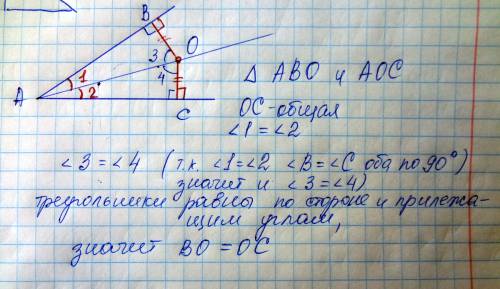 B
O
1
3
4
2
A
C
Δ ABO и AOC
OC-общая
∠1=∠2
∠3=∠4 (т.к. ∠1=∠2 ∠B=∠C оба по 90°)
значит и ∠3=∠4)
треугольники равны по стороне и прилежа-
щим углам,
значит BO=OC